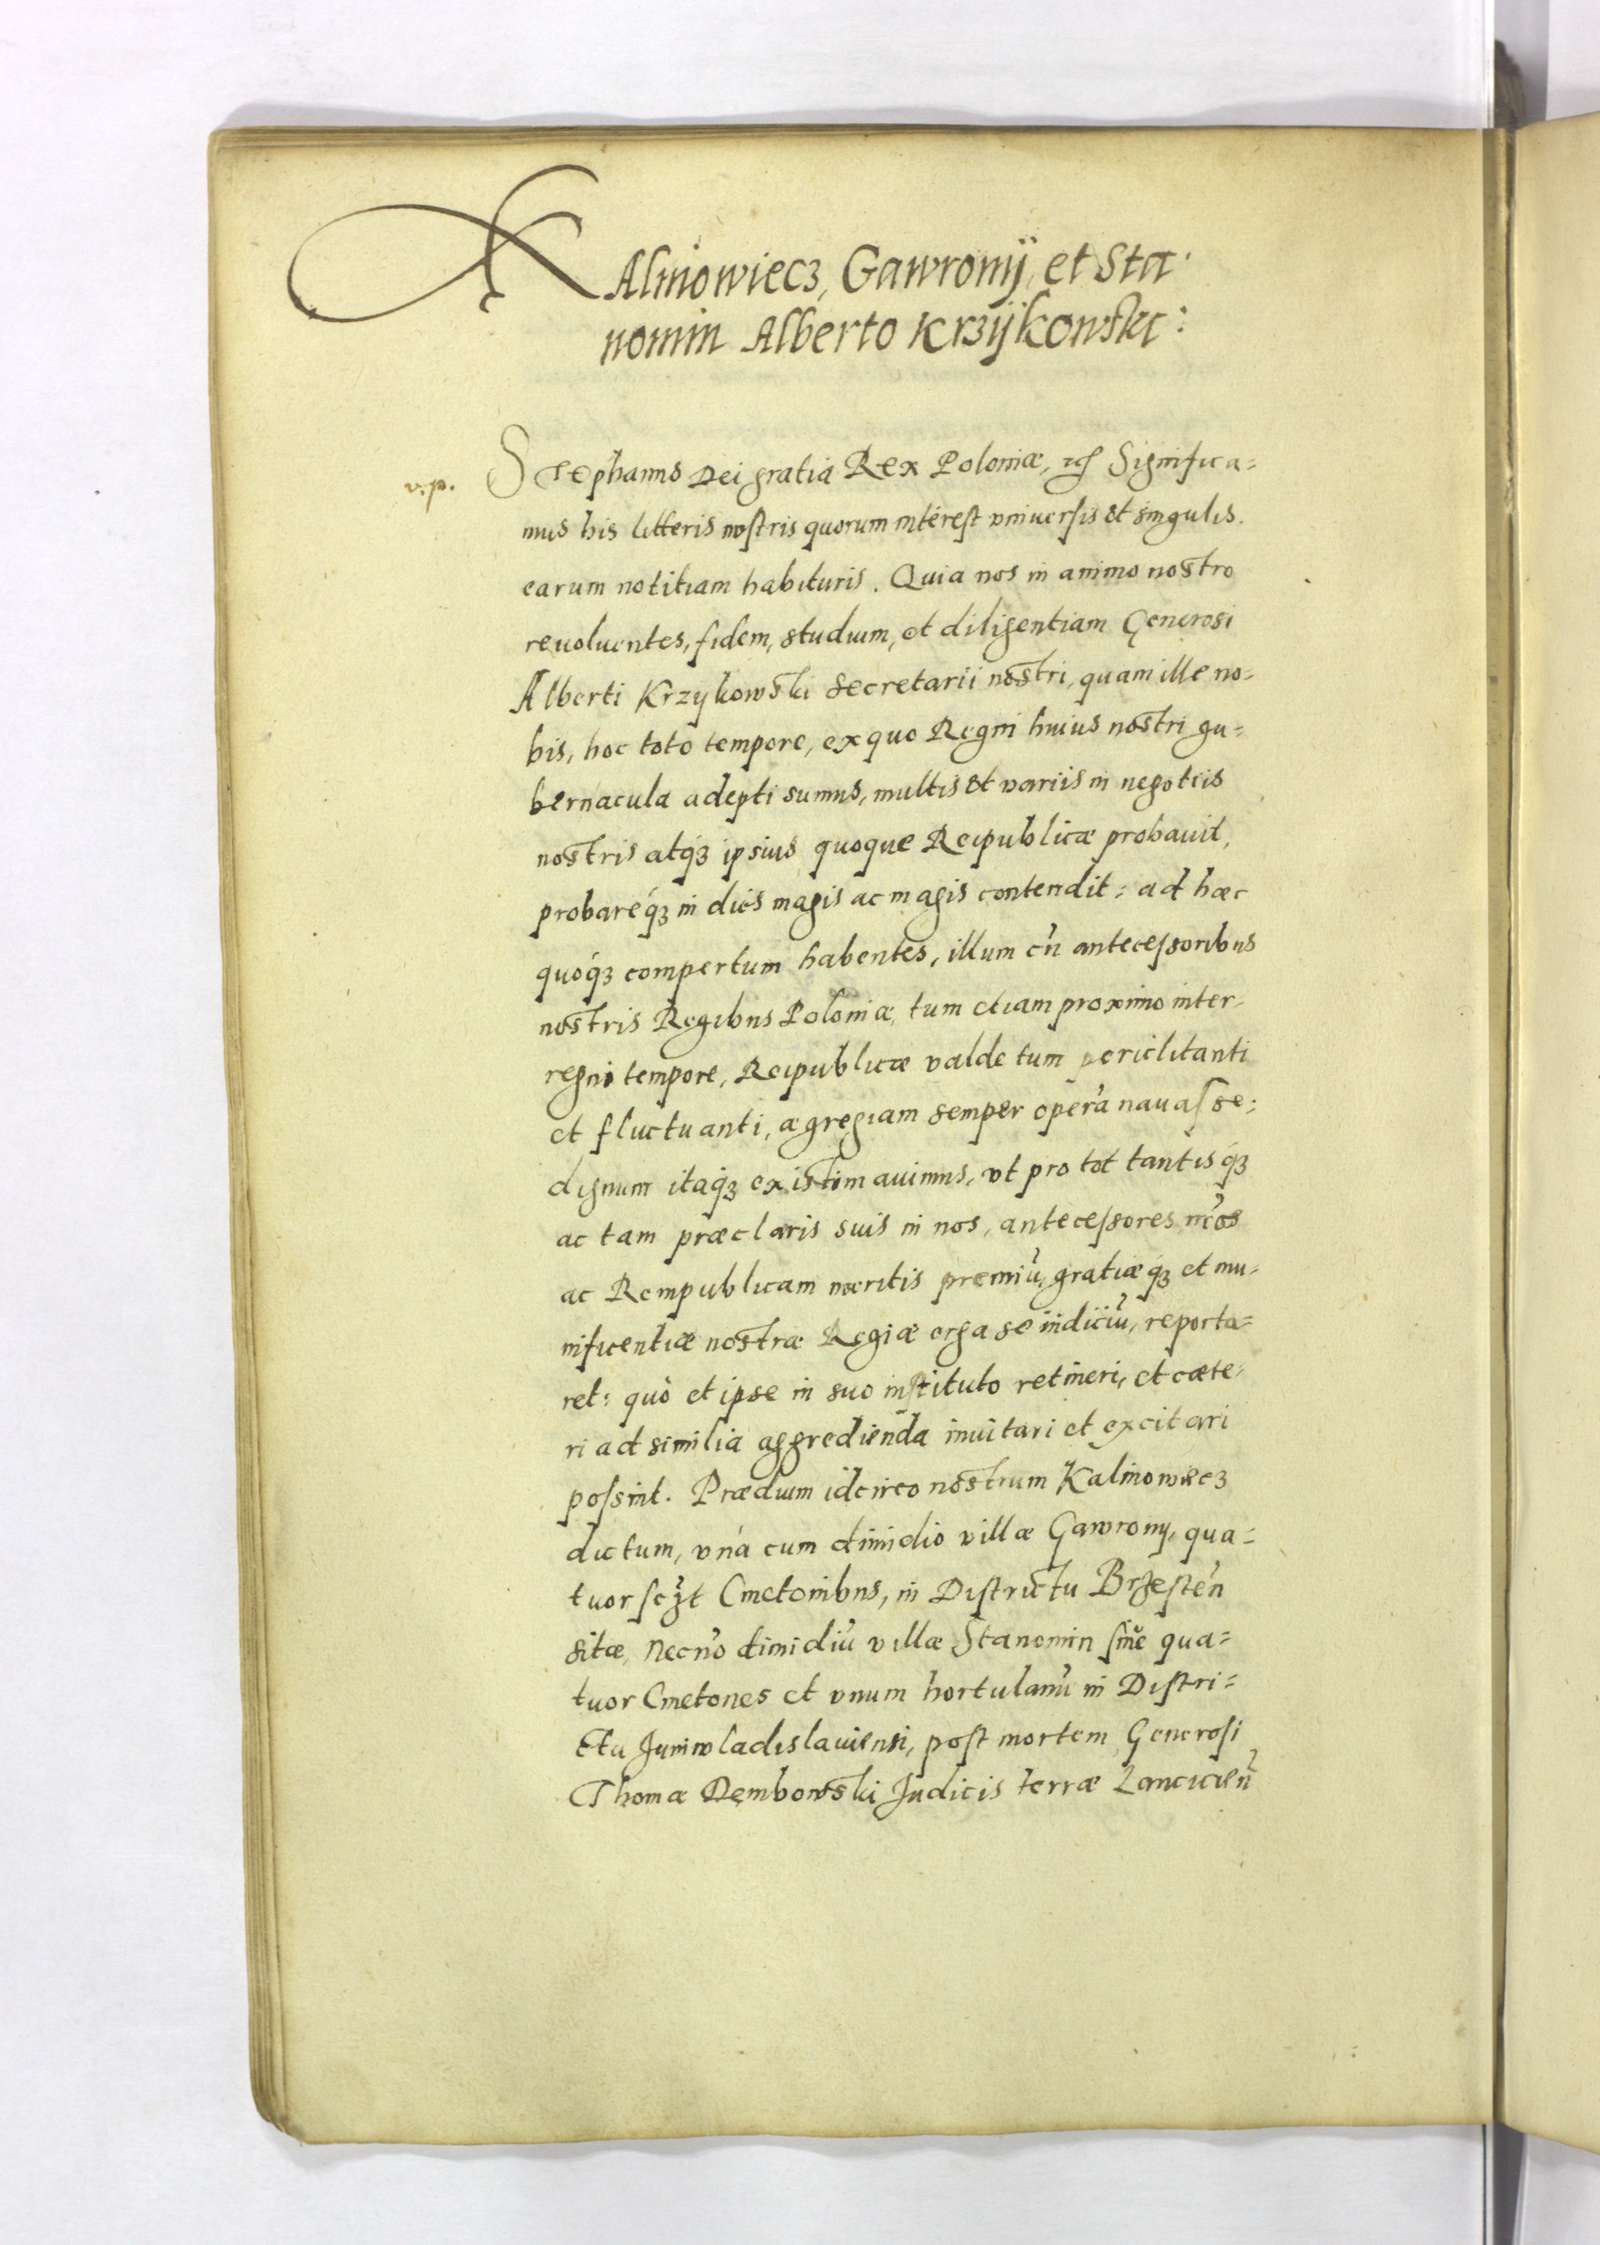 KAlinowiecz, Gawronij, et Sta
nomin Alberto Krzijkowski:
v. p.
Stephanus Dei gratia Rex Poloniæ, etc Significa=
mus his litteris nostris quorum interest vniuersis et singulis.
earum notitiam habituris. Quia nos in animo nostro
reuoluentes, fidem, studium, et diligentiam Generosi
Alberti Krzykowski Secretarii nostri, quam ille no=
bis, hoc toto tempore, ex quo Regni huius nostri gu=
bernacula adepti sumus, multis et variis in negotiis
nostris atq₃ ipsius quoque Reipublicæ probauit,
probareq́₃ in dies magis ac magis contendit: ad hæc
quoq́₃ compertum habentes, illum cũ antecessoribus
nostris Regibus Poloniæ, tum etiam proximo inter-
regni tempore, Reipublicæ valde tum periclitanti
et fluctuanti, ægregiam semper operã nauasse:
dignum itaq₃ existimauimus, vt pro tot tantisq́₃
ac tam præclaris suis in nos, antecessores nr̃os
ac Rempublicam meritis premiũ, gratiæq́₃ et mu-
nificentiæ nostræ Regiæ erga se indiciũ, reporta=
ret: quò et ipse in suo instituto retineri, et cæte-
ri ad similia aggredienda inuitari et excitari
possint. Prædium idcirco nostrum Kalinowiecz
dictum, vnà cum dimidio villæ Gawrony, qua=
tuor scz̃t Cmetonibus, in Districtu Brzesteñ
sitæ, Necnõ dimidiũ villæ Stanomin siũe qua=
tuor Cmetones et vnum hortulanũ in Distri=
ctu Juniwladislauiensi, post mortem Generosi
Thomæ Dembowski Judicis terræ Lancicieñ